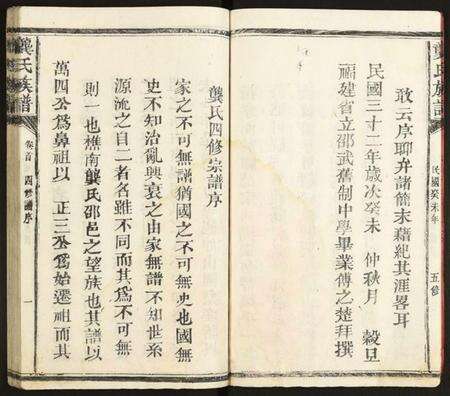 龔氏族譜
民國癸未年
五修
敢云序聊弁諸簡末藉紀其涯畧耳
民國三十二年歲次癸未 仲秋月 穀旦
福建省立邵武舊制中學畢業傅之楚拜撰
龔氏四修宗譜序
家之不可無譜猶國之不可無史也國無
史不知治亂興衰之由家無譜不知世系
源流之自二者名雖不同而其爲不可無
則一也樵南龔氏邵邑之望族也其譜以
萬四公爲鼻祖以 正三公爲始遷祖而其
龔氏族譜
卷首 四修譜序
一